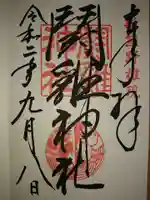 奉拝
鬪雞神社
令和二年九月八日